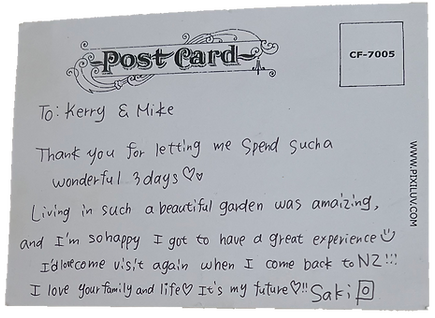 Post Card
CF-7005
To: Kerry & Mike
Thank you for letting me spend such a
wonderful 3 days♡♡
Living in such a beautiful garden was amaizing,
and I'm so happy I got to have a great experience☺
I'd love come visit again when I come back to NZ!!!
I love your family and life♡ It's my future♡!!
Saki
WWW.PIXILUV.COM